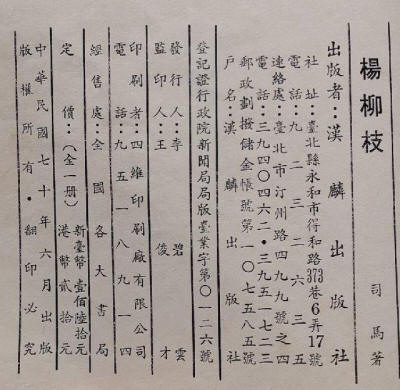 楊柳枝
司馬著
出版者：漢麟出版社
社址：臺北縣永和市得和路373巷6弄17號
電話：九二三二六三五
連絡處：臺北市汀州路四九九號之四
電話：三九四〇四六二・三九五一七二三
郵政劃撥儲金帳號第一〇七五八五號
戶名：漢麟出版社
登記證行政院新聞局局版臺業字第〇一二六號
發行人：李碧雲
監印人：王俊才
印刷者：四維印刷廠有限公司
電話：九五一八九一四
經售處：全國各大書局
定價：（全一册）
新臺幣壹佰陸拾元
港幣貳拾元
中華民國七十年六月出版
版權所有・翻印必究